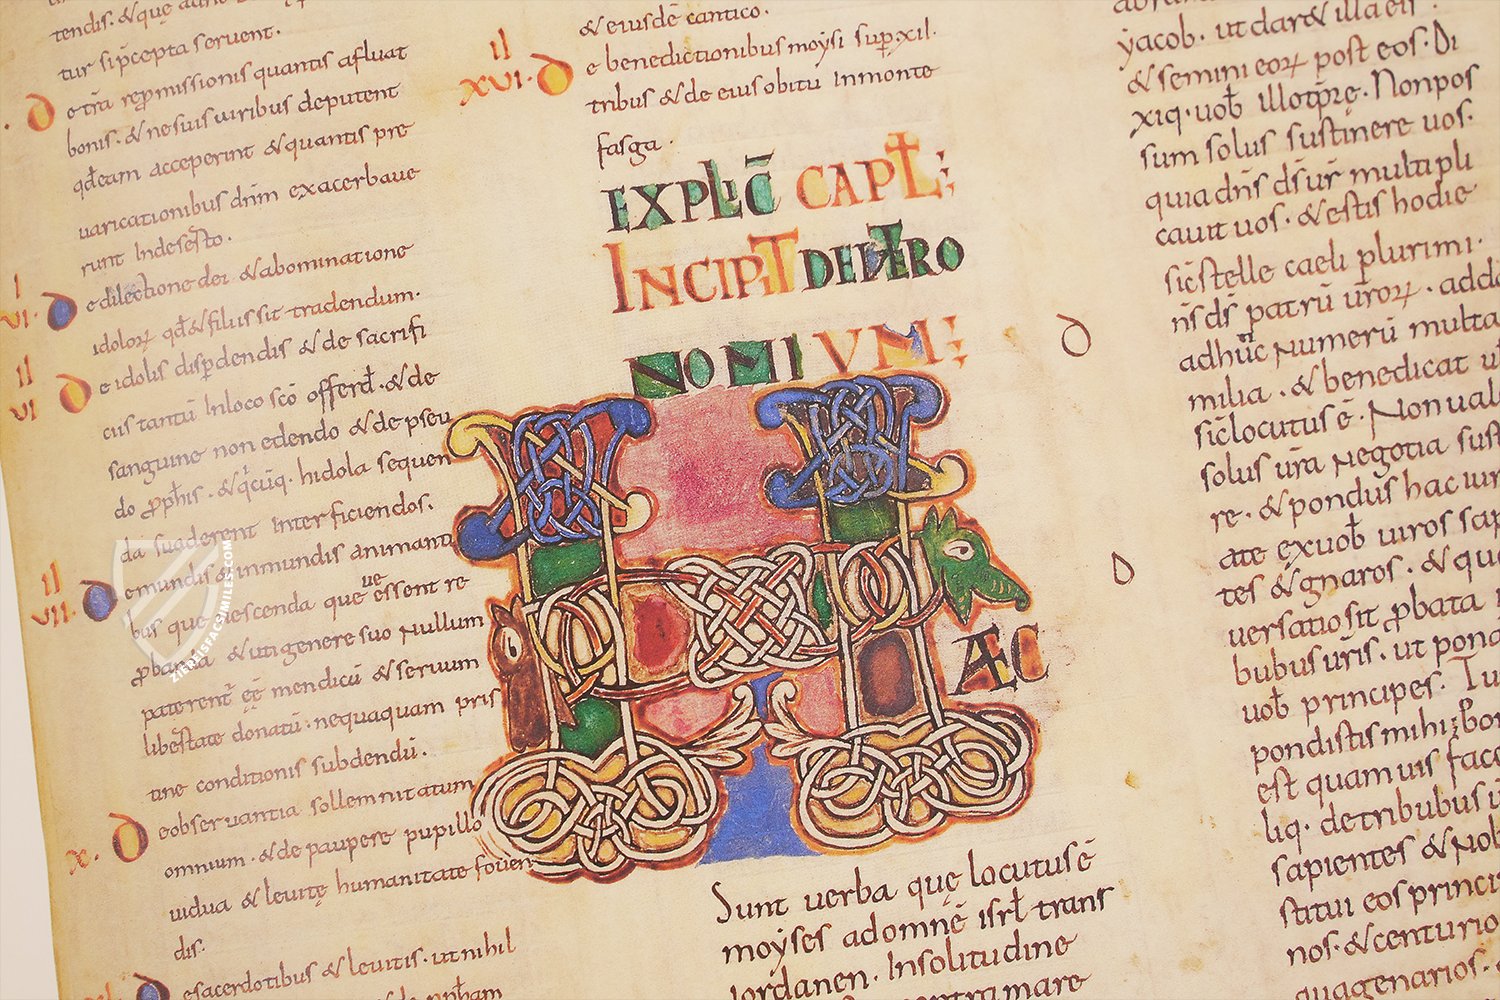 tendis. & quę
tur sip̄cepta servent.
D e tr̄a rep̄romissionis quantis afluat
bonis. & ne suis uiribus deputent
qđ eam acceperint & quantis pre
uaricationibus dn̄m exacerbaue
runt In deserto.
I VI. D e dilectione dei. & abominatione
idoloꝝ qđ & filiis sit tradendum.
II VI D e idolis disꝑdendis & de sacrifi
ciis tantū In loco sc̄o offerđ. & de
sanguine non edendo & de pseu
do ꝓphis. & qicūq. hidola sequen
da suaderent Interficiendos.
II VII. D e mundis & inmundis animanti
bus que uescenda que ue essent re
ꝓbanda & uti genere suo Nullum
paterent̄ ēē mendicū & seruum
libertate donatū. nequaquam pris
tine conditionis subdendū.
X. D e obseruantia sollemnitatum
omnium. & de paupere pupillo
uidua & leuitę humanitate fouen
dis.
D e sacerdotibus & leuitis. ut nihil
& eiusdē cantico.
II XVI. D e benedictionibus moysi sup. xii.
tribus & de eius obitu In monte
fasga.
EXPLIC̄ CAPL̄;
INCIPIT DEUTERO
NOMIUM;
HÆC
Sunt uerba quę locutus ē
moyses ad omnē isrł trans
iordanen. In solitudine
contra mare
yacob. ut dar& illa eis.
& semini eoꝝ post eos. Di
xiq. uob̄ illo tp̄re. Non pos
sum solus sustinere uos.
quia dn̄s ds̄ ur̄ multipli
cauit uos. & estis hodie
sic̄ stelle caeli plurimi.
D n̄s ds̄ patrū ur̄oꝝ. adda
ad hūc Numerū multa
milia. & benedicat
sic̄ locutus ē. Non uali
solus ur̄a Negotia sust
re. & pondus hac iur
D ate ex uob̄ uiros sap
tes & gnaros. & quo
uersatio sit ꝓbata
bubus ur̄is. ut pona
uob̄ principes. Tu
pondistis mihi; bon
est quam uis face
liq. de tribubus
sapientes & Nob
statui eos princi
nos. & centurio
quagenarios.
ZIEREISFACSIMILES.COM